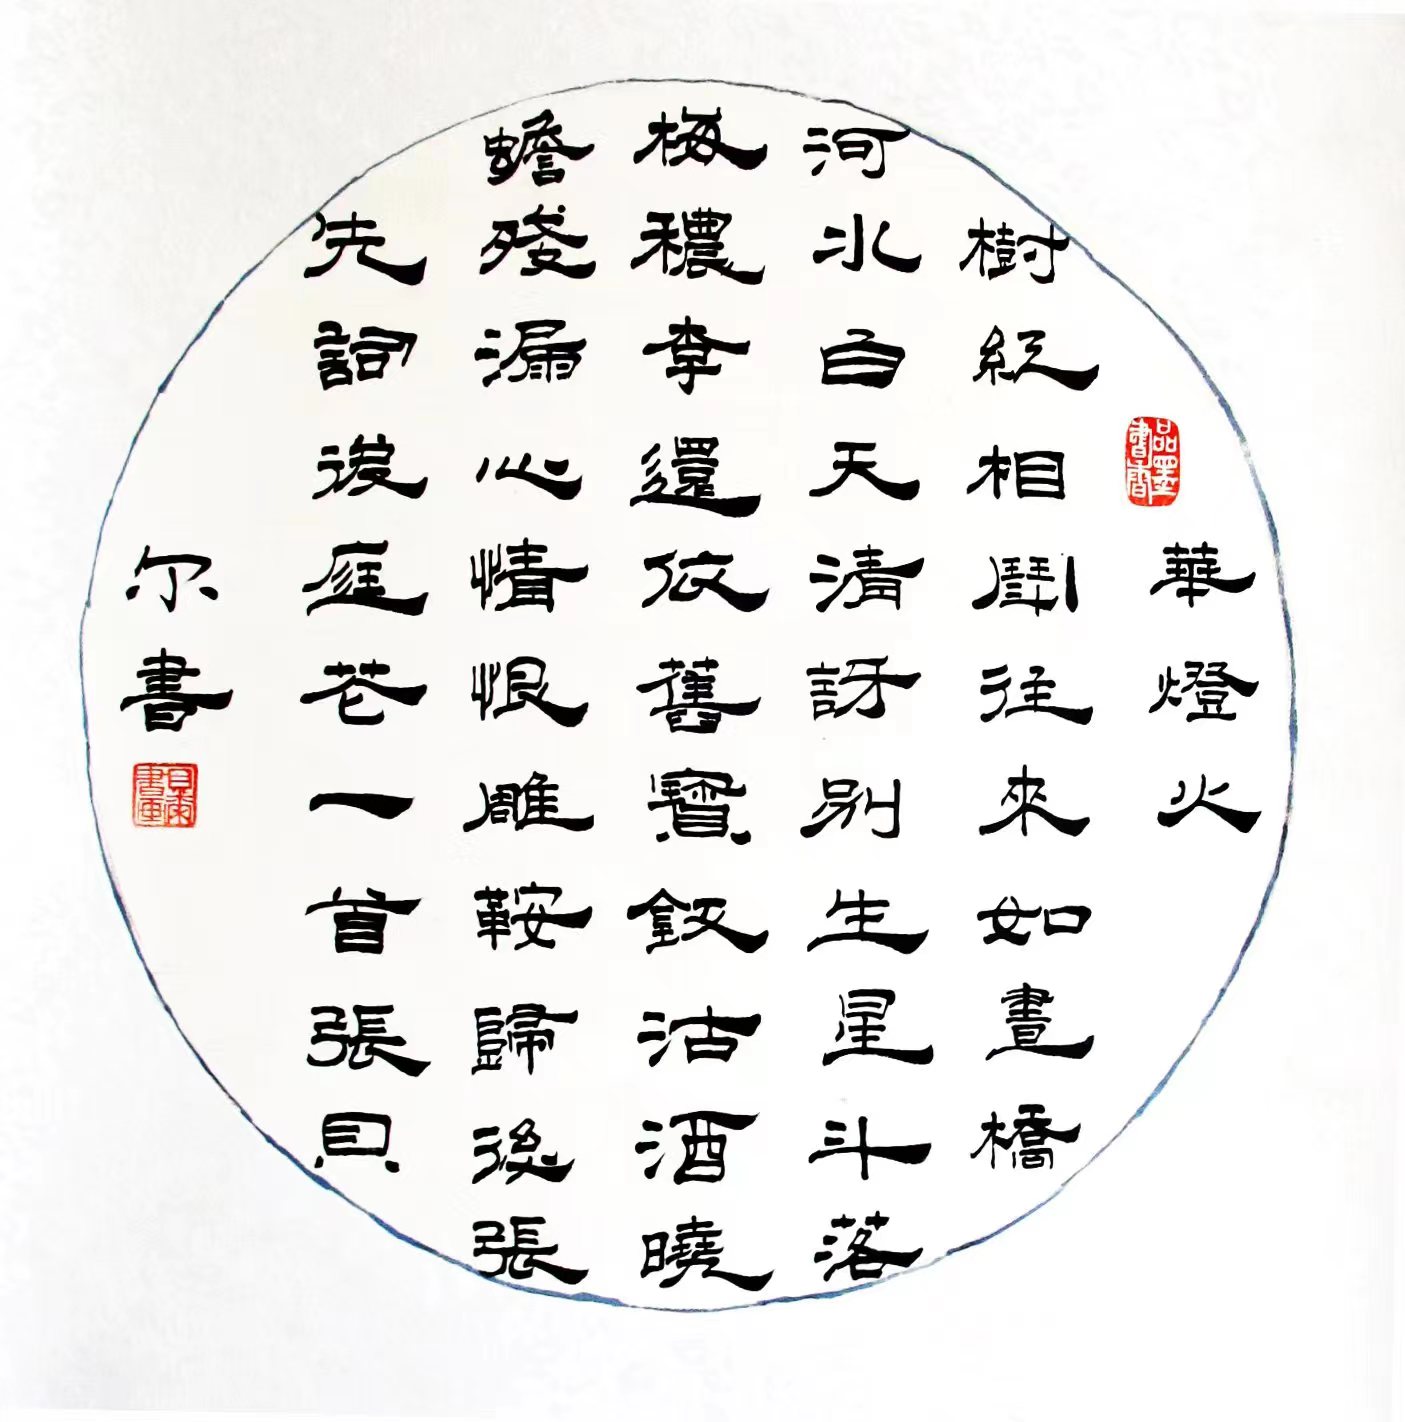 品墨書香
華燈火
樹紅相鬭往來如晝橋
河水白天清訝別生星斗落
梅穠李還依舊寶釵沽酒曉
蟾殘漏心情恨雕鞍歸後張
先詞後庭花一首張貝
尔書